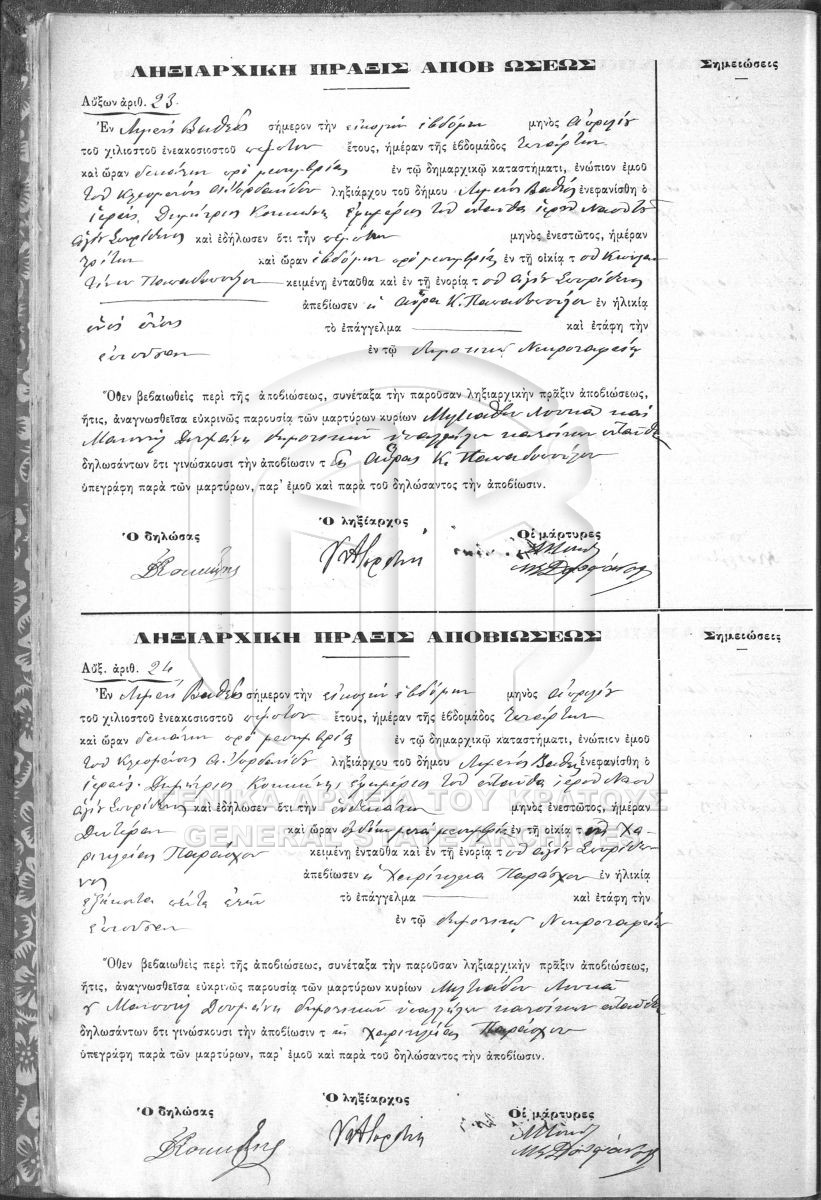 ΛΗΞΙΑΡΧΙΚΗ ΠΡΑΞΙΣ ΑΠΟΒ ΩΣΕΩΣ
Σημειώσεις
Αὔξων ἀριθ. 23.
Ἐν Λιμένι Βαθέος σήμερον τὴν εἰκοστὴν ἑβδόμην μηνὸς Ἀπριλίου
τοῦ χιλιοστοῦ ἐνεακοσιοστοῦ πέμπτου ἔτους, ἡμέραν τῆς ἑβδομάδος Τετάρτην
καὶ ὥραν δεκάτην πρὸ μεσημβρίας ἐν τῷ δημαρχικῷ καταστήματι, ἐνώπιον ἐμοῦ
τοῦ ληξιάρχου τοῦ δήμου Λιμένος Βαθέος ἐνεφανίσθη ὁ
ἱερεὺς Δημήτριος Κοκκώνης ἐφημέριος τοῦ ἐνταῦθα ἱεροῦ Ναοῦ τοῦ
ἁγίου Σπυρίδωνος καὶ ἐδήλωσεν ὅτι τὴν πέμπτην μηνὸς ἐνεστῶτος, ἡμέραν
Τρίτην καὶ ὥραν ἑβδόμην πρὸ μεσημβρίας ἐν τῇ οἰκίᾳ τοῦ Κωνσταν
τίνου Παπαδοπούλου κειμένῃ ἐνταῦθα καὶ ἐν τῇ ἐνορίᾳ τοῦ ἁγίου Σπυρίδωνος
ἀπεβίωσεν ἡ Αὔρα Κ. Παπαδοπούλου ἐν ἡλικίᾳ
ἑνὸς ἔτους τὸ ἐπάγγελμα καὶ ἐτάφη τὴν
ἐπιοῦσαν ἐν τῷ δημοτικῷ Νεκροταφείῳ
Ὅθεν βεβαιωθεὶς περὶ τῆς ἀποβιώσεως, συνέταξα τὴν παροῦσαν ληξιαρχικὴν πρᾶξιν ἀποβιώσεως,
ἥτις, ἀναγνωσθεῖσα εὐκρινῶς παρουσίᾳ τῶν μαρτύρων κυρίων Μιλτιάδου Λουκᾶ καὶ
Μανουὴλ δημοτικῶν ὑπαλλήλων κατοίκων ἐνταῦθα
δηλωσάντων ὅτι γινώσκουσι τὴν ἀποβίωσιν τῆς Αὔρας Κ. Παπαδοπούλου
ὑπεγράφη παρὰ τῶν μαρτύρων, παρ' ἐμοῦ καὶ παρὰ τοῦ δηλώσαντος τὴν ἀποβίωσιν.
Ὁ δηλώσας
Ὁ ληξίαρχος
Οἱ μάρτυρες
ΛΗΞΙΑΡΧΙΚΗ ΠΡΑΞΙΣ ΑΠΟΒΙΩΣΕΩΣ
Σημειώσεις
Αὔξ. ἀριθ. 24
Ἐν Λιμένι Βαθέος σήμερον τὴν εἰκοστὴν ἑβδόμην μηνὸς Ἀπριλίου
τοῦ χιλιοστοῦ ἐνεακοσιοστοῦ πέμπτου ἔτους, ἡμέραν τῆς ἑβδομάδος Τετάρτην
καὶ ὥραν δεκάτην πρὸ μεσημβρίας ἐν τῷ δημαρχικῷ καταστήματι, ἐνώπιον ἐμοῦ
τοῦ ληξιάρχου τοῦ δήμου Λιμένος Βαθέος ἐνεφανίσθη ὁ
ἱερεὺς Δημήτριος Κοκκώνης ἐφημέριος τοῦ ἐνταῦθα ἱεροῦ Ναοῦ
ἁγίου Σπυρίδωνος καὶ ἐδήλωσεν ὅτι τὴν ἑνδεκάτην μηνὸς ἐνεστῶτος, ἡμέραν
Δευτέραν καὶ ὥραν ὀγδόην μετὰ μεσημβρίαν ἐν τῇ οἰκίᾳ τ Χα-
ρικλείας Παράσχου κειμένῃ ἐνταῦθα καὶ ἐν τῇ ἐνορίᾳ τοῦ ἁγίου Σπυρίδωνος
ἀπεβίωσεν ἡ Χαρίκλεια Παράσχου ἐν ἡλικίᾳ
ἑξήκοντα πέντε ἐτῶν τὸ ἐπάγγελμα καὶ ἐτάφη τὴν
ἐπιοῦσαν ἐν τῷ δημοτικῷ Νεκροταφείῳ
Ὅθεν βεβαιωθεὶς περὶ τῆς ἀποβιώσεως, συνέταξα τὴν παροῦσαν ληξιαρχικὴν πρᾶξιν ἀποβιώσεως,
ἥτις, ἀναγνωσθεῖσα εὐκρινῶς παρουσίᾳ τῶν μαρτύρων κυρίων Μιλτιάδου Λουκᾶ
Μανουὴλ δημοτικῶν ὑπαλλήλων κατοίκων ἐνταῦθα
δηλωσάντων ὅτι γινώσκουσι τὴν ἀποβίωσιν τῆς Χαρικλείας Παράσχου
ὑπεγράφη παρὰ τῶν μαρτύρων, παρ' ἐμοῦ καὶ παρὰ τοῦ δηλώσαντος τὴν ἀποβίωσιν.
Ὁ δηλώσας
Ὁ ληξίαρχος
Οἱ μάρτυρες
ΓΕΝΙΚΑ ΑΡΧΕΙΑ ΤΟΥ ΚΡΑΤΟΥΣ
GENERAL STATE ARCHIVES